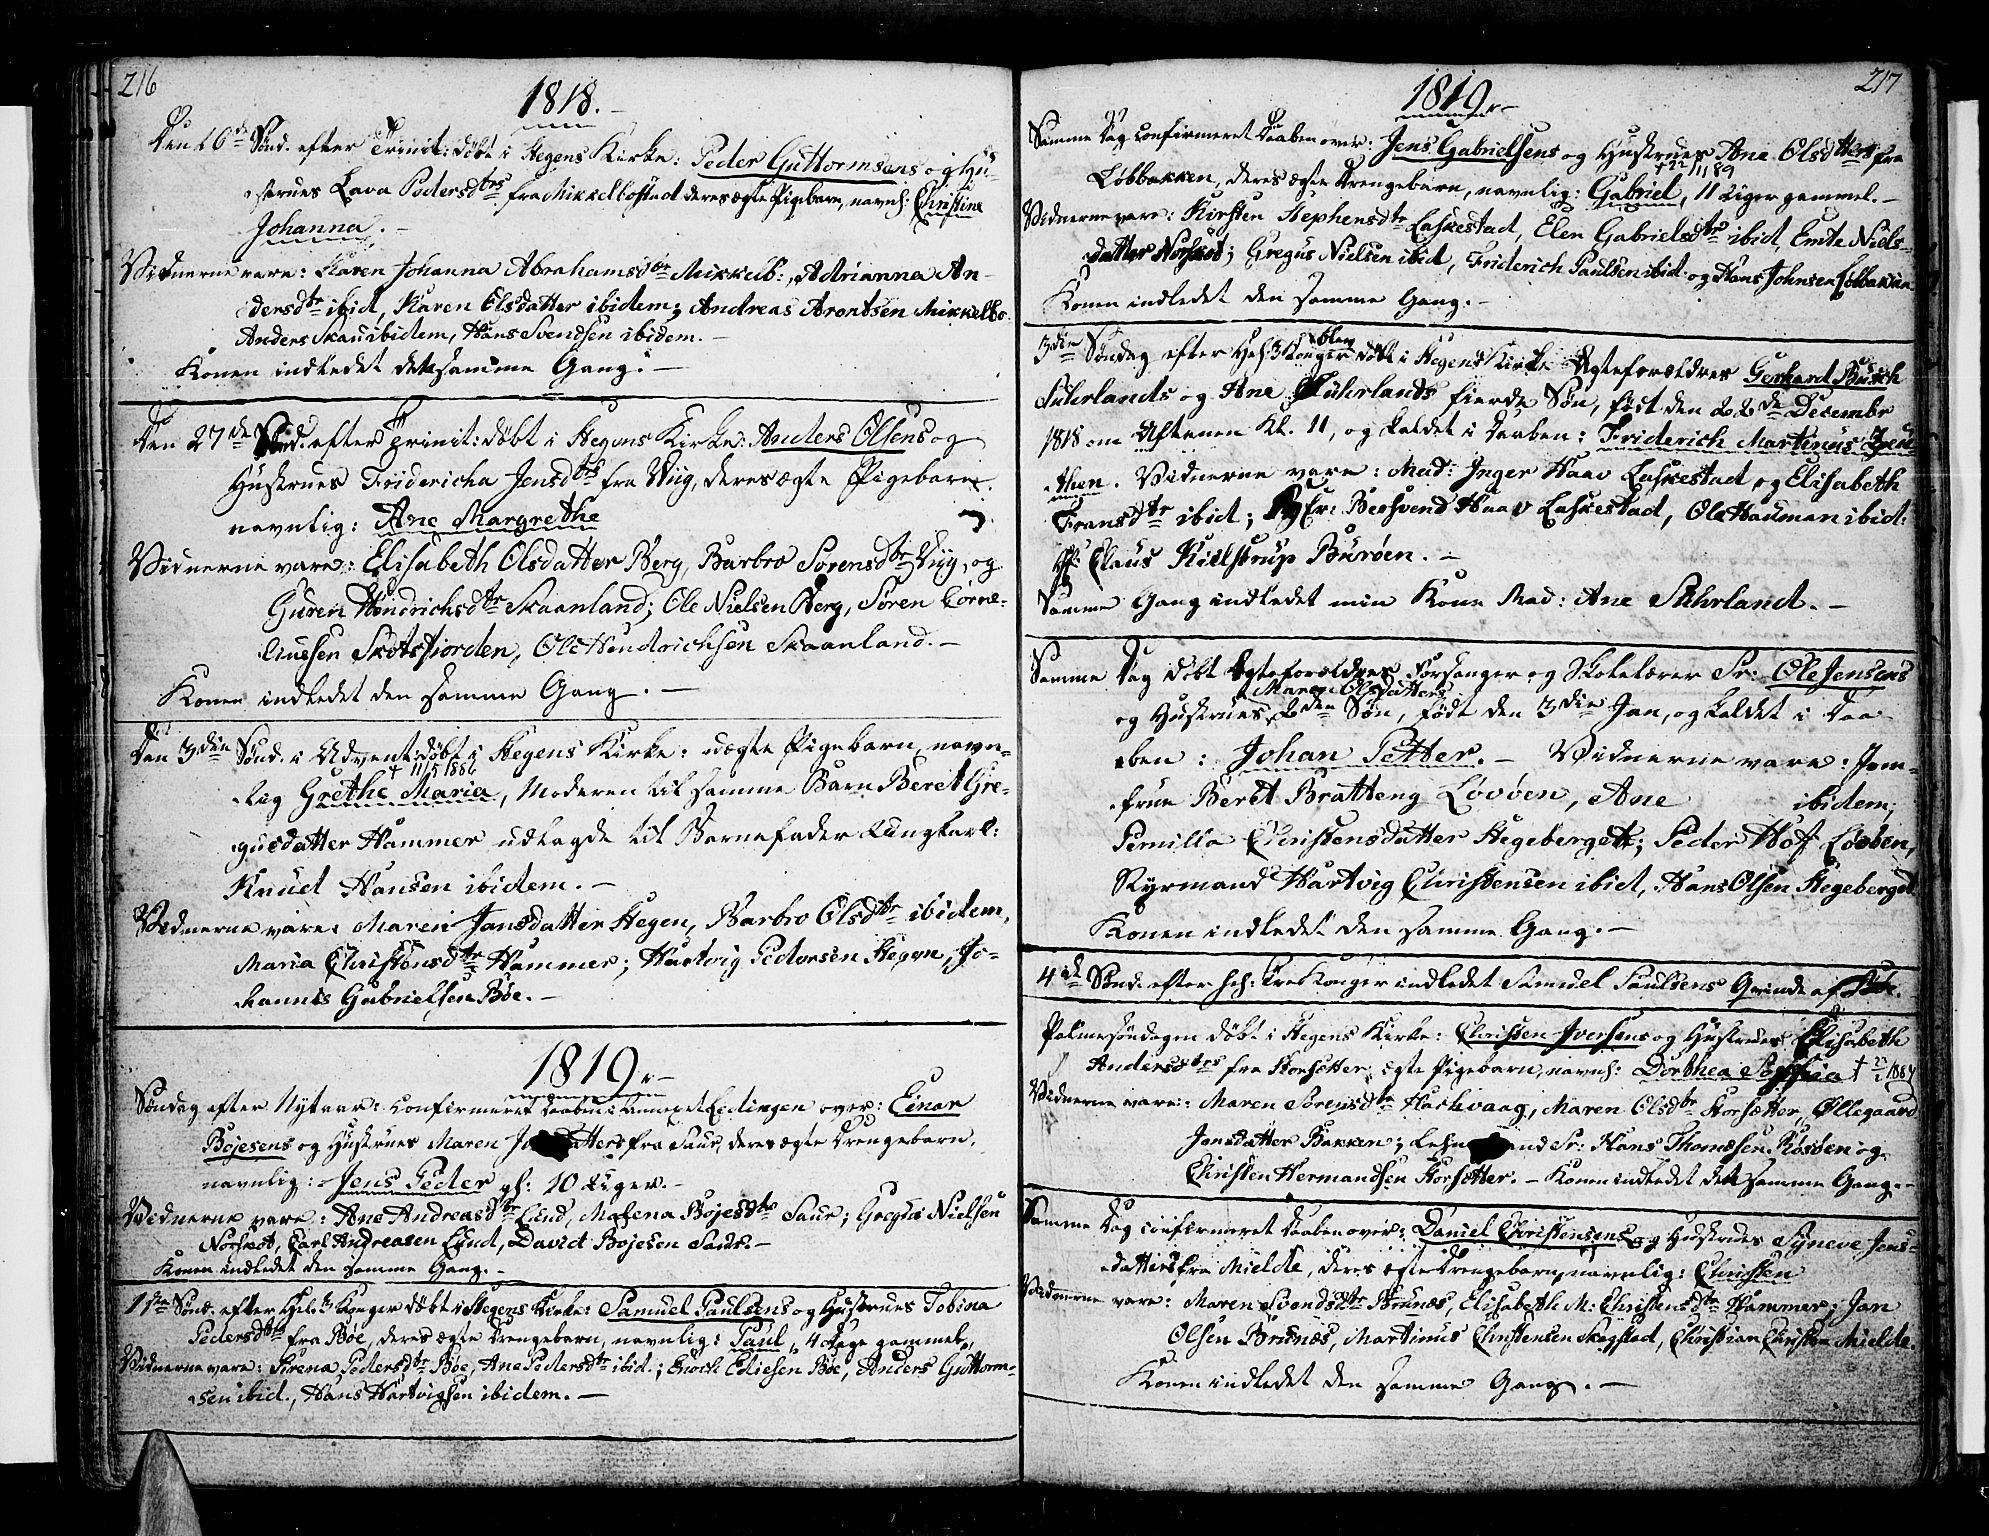 216
1818.
Den 16de Sønd. efter Trinit: døbt i Stegens Kirke: Peder Guttormsens og Hu-
strues Lava Pedersdtrs fra Mikkelbostad deres ægte Pigebarn, navnl: Christine
Johanna.
Vidnerne vare: Karen Johanna Abrahamsdtr Mikkelb:, Adrianna An-
dersdtr ibid, Karen Olsdatter ibidem; Andreas Arontsen Mikkelbo.
Anders Skau ibidem, Hans Svendsen ibidem.
Konen indledet den samme Gang.
Den 27de Sønd. efter Trinit: døbt i Stegens Kirke: Anders Olsens og
Hustrues Friidericha Jensdtrs fra Viig, deres ægte Pigebarn.
navnlig: Ane Margrethe
Vidnerne vare: Elisabeth Olsdatter Berg, Barbro Sørensdtr Viig, og
Guren Hendrichsdtr Skaanland; Ole Nielsen Berg, Søren Corne-
liussen Skotsfiorden, Ole Hendrichsen Skaanland.
Konen indledet den samme Gang.
Den 3die Sønd. i Advent: døbt i Stegens Kirke: uægte Pigebarn, navn-
† 11/5 1886
lig Grethe Maria, Moderen til samme Barn Berit Gre-
gusdatter Hammer udlagde til Barnefader Ungkarl:
Knud Hansen ibidem.
Vidnerne vare: Maren Jansdatter Stegen, Barbro Olsdtr ibidem,
Maria Christensdtr Hammer; Hartvig Pedersen Stegen, Jo-
hannis Gabrielsen Bøe.
1819
Søndag efter Nytaar: Confirmeret Daaben i Annexet Ledingen over: Einar
Bojesens og Hustrues Maren datters fra Saur, deres ægte Drengebarn,
navnlig: Jens Peder gl: 10 Uger.
Vidnerne vare: Ane Andreasdtr Lund, Malena Bojesdtr Saur; Gregus Nielsen
Norskot, Carl Andreasen Lund, David Bojesen Saur.
Konen indledet den samme Gang.
1ste Sønd. efter Hel. 3 Konger døbt i Stegens Kirke: Samuel Paulsens og Hustrues Tobina
Pedersdtrs fra Bøe, deres ægte Drengebarn, navnlig: Paul, 4 Dage gammel,
Vidnerne vare: Sirena Pedersdtr Bøe, Ane Pedersdtr ibid.; Enoch Eliesen Bøe, Anders Guttorm-
sen ibid., Hans Hartvigsen ibidem.
217
1819
Samme Dag Confirmeret Daaben over: Jens Gabrielsens og Hustrues Ane Olsdtters fra
† 22/11 89
Løbbakken, deres ægte Drengebarn, navnlig: Gabriel, 11 Uger gammel.
Vidnerne vare: Kirsten Stephensdtr Laskestad, Elen Gabrielsdtr ibid, Emte Niels-
datter Norskot; Gregus Nielsen ibid, Friderich Paulsen ibid. og Hans Johnsen Løbbakken
Konen indledet den samme Gang.
3die Søndag efter Hel: 3 Konger døbt i Stegens Kirke Ægteforældres Gerhard Busch
Suhrlands og Ane Suhrlands fierde Søn, født den 22de Decembr
1818 om Aftenen Kl. 11, og kaldet i Daaben: Friderich Martinus
then. Vidnerne vare: Mad: Inger Haav Laskestad og Elisabeth
Fransdtr ibid; Hr: Beshvend Haav Laskestad, Ole Hauman ibid:
Hr Claus Kiellstrup Burøen.
Samme Gang indledet min Kone Mad: Ane Suhrland.
Samme Dag døbt Ægteforældres Forsanger og Skolelærer Sr: Ole Jensens
Maren Olsdatters
og Hustrues 2den Søn, født den 3die Jan, og kaldet i Daa-
ben: Johan Petter. Vidnerne vare: Jom-
frue Beret Bratteng Lovøen, Ane ibidem;
Pernilla Christensdatter Stegeberget; Peder Hof Loeben,
Styrmand Hartvig Christensen ibid, Hans Olsen Stegeberget
Konen indledet den samme Gang.
4de Sønd. efter Hel: Tre Konger indledet Samuel Paulsens Qvinde af Bøe.
Palmesøndagen døbt i Stegens Kirke: Christen Iversens og Hustrues Elisabeth
Andersdtrs fra Horsætter, ægte Pigebarn, navnl: Dorthea Sophia †
Vidnerne vare: Maren Sørensdtr Haskvaag, Maren Olsdtr Horsætter, Øllegaard
Jensdatter Bakken; Sr: Hans Thomesen Røsøen og
Christen Hermandsen Horsætter. Konen indledet den samme Gang.
Samme Dag confirmeret Daaben over: Daniel Christensens og Hustrues Synneve Jens-
datters fra Mielde, deres ægte Drengebarn, navnlig: Christen
Vidnerne vare: Maren Svendsdtr Brunæs, Elisabeth M: Christensdtr Hammer; Jan
Olsen Brunæs, Martinus Christensen Skogstad, Christian Christen Mielde.
Konen indledet den samme Gang.